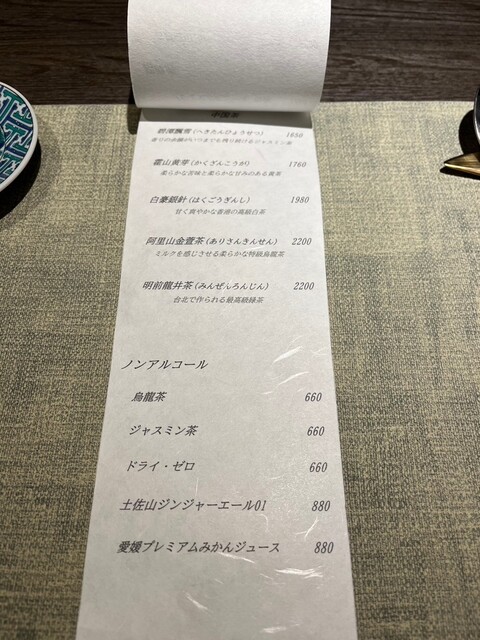 中国茶
碧潭飄雪(へきたんひょうせつ) 1650
香りの余韻がいつまでも残り続けるジャスミン茶
霍山黄芽(かくざんこうが) 1760
柔らかな苦味と柔らかな甘みのある黄茶
白豪銀針(はくごうぎんし) 1980
甘く爽やかな香感の高級白茶
阿里山金萱茶(ありさんきんせん) 2200
ミルクを感じさせる柔らかな特級烏龍茶
明前龍井茶(みんぜんろんじん) 2200
台北で作られる最高級緑茶
ノンアルコール
烏龍茶 660
ジャスミン茶 660
ドライ・ゼロ 660
土佐山ジンジャーエール01 880
愛媛プレミアムみかんジュース 880